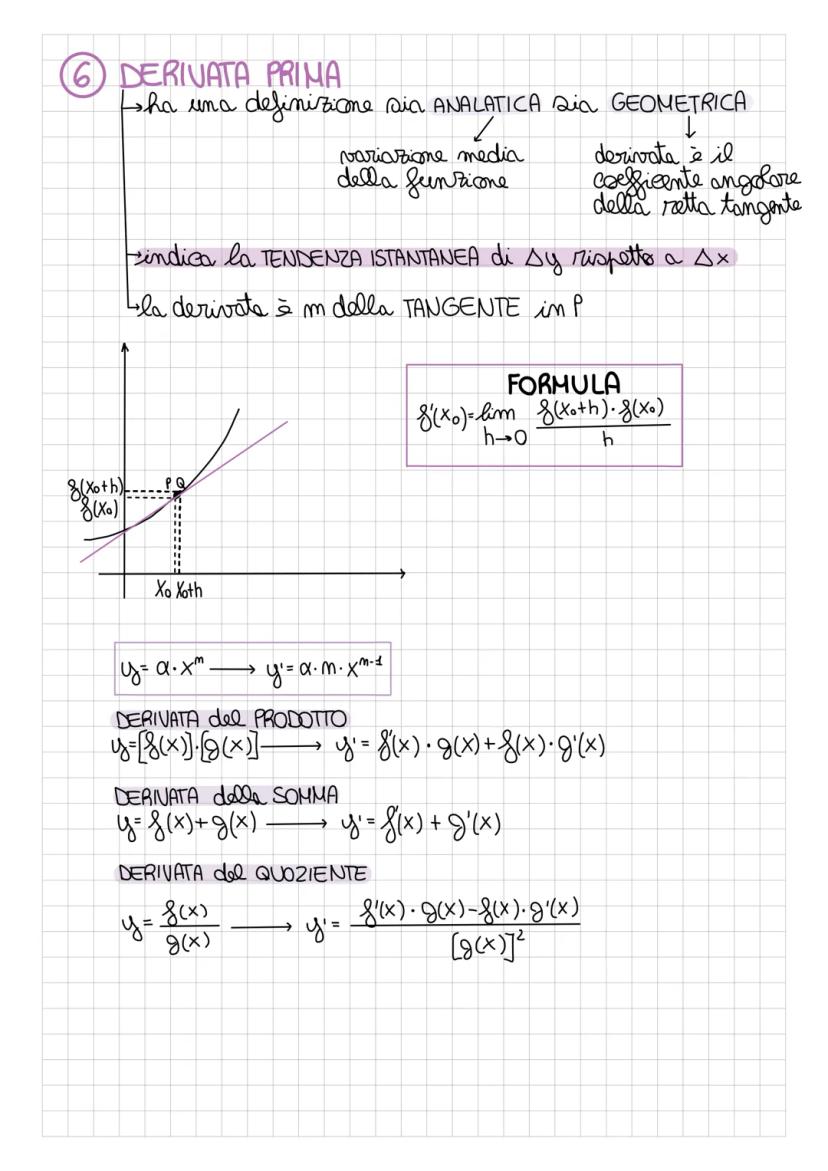 6 DERIVATA PRIMA
→ha una definizione sia ANALATICA sia GEOMETRICA
variazione media
della funzione
derivata è il
coefficente angolare
della retta tangente
→indica la TENDENZA ISTANTANEA di Δy rispetto a Δx
→la derivata è m della TANGENTE in P
FORMULA
f'(x₀)=lim f(x₀+h)·f(x₀)
h→0 h
f(x₀+h)
f(x₀)
P Q
x₀ x₀+h
y= a·xⁿ ⟶ y'= a·n·xⁿ⁻¹
DERIVATA del PRODOTTO
y=[f(x)]·[g(x)] ⟶ y'= f'(x)·g(x)+f(x)·g'(x)
DERIVATA della SOMMA
y= f(x)+g(x) ⟶ y'= f'(x) + g'(x)
DERIVATA del QUOZIENTE
y= f(x)/g(x) ⟶ y'= f'(x)·g(x)-f(x)·g'(x)/[g(x)]²